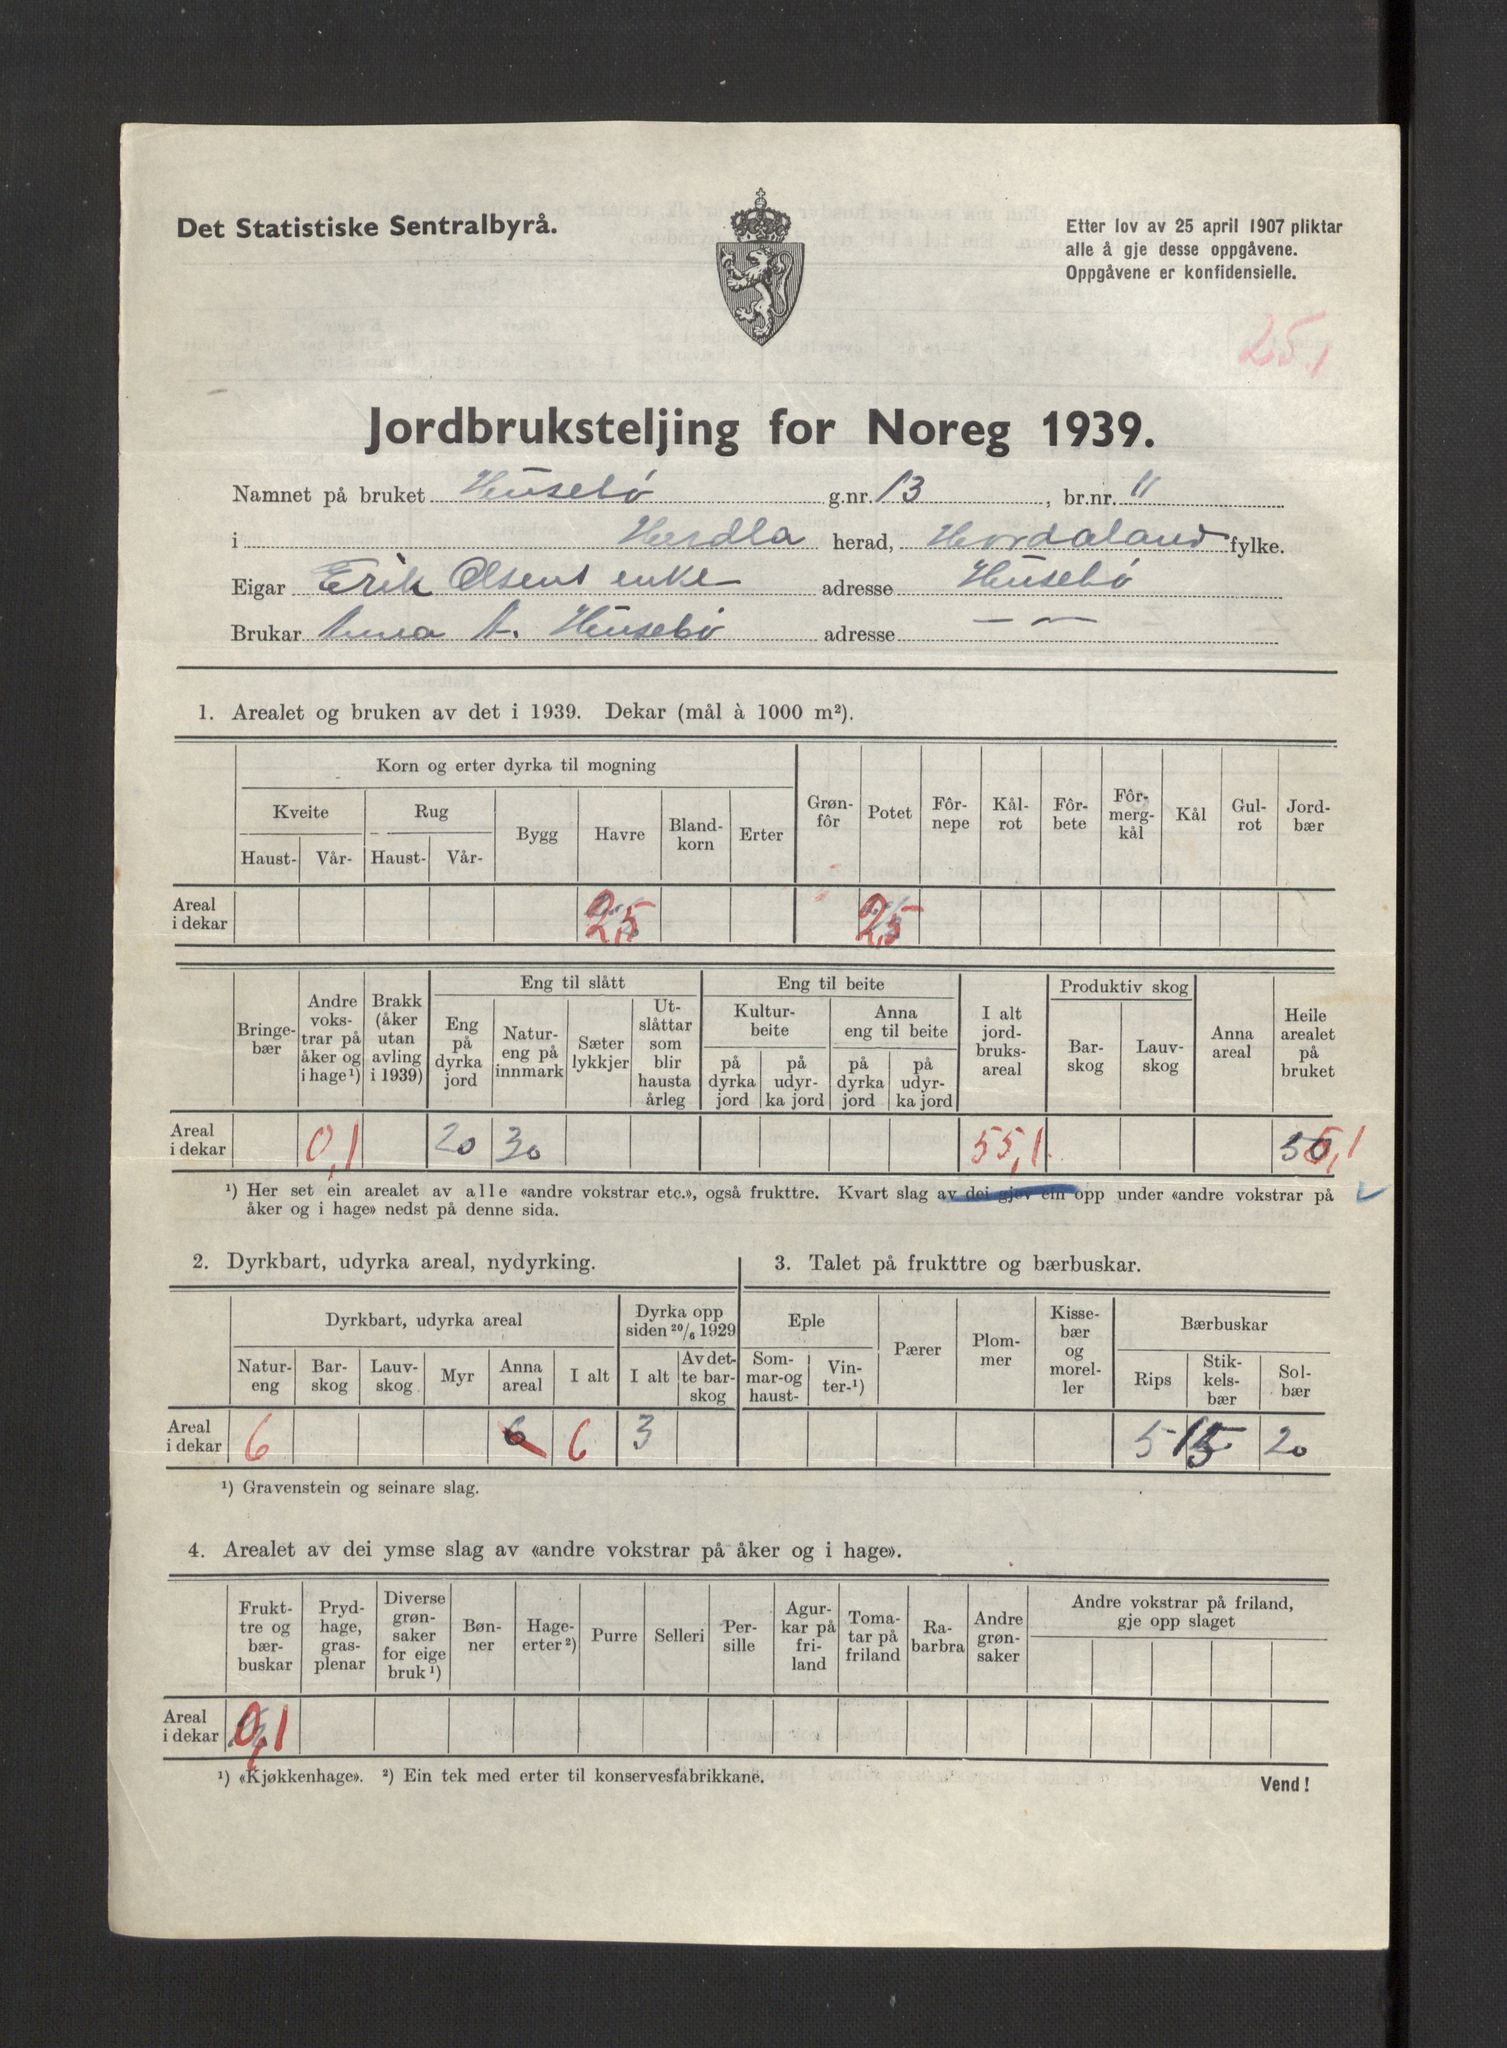 Det Statistiske Sentralbyrå.
Etter lov av 25 april 1907 pliktar
alle å gje desse oppgåvene.
Oppgåvene er konfidensielle.
25.1
Jordbruksteljing for Noreg 1939.
Namnet på bruket Husebø g.nr. 13, br.nr. 11
i Herdla herad, Hordaland fylke.
Eigar Erik Olsens enke adresse Husebø
Brukar Anna A. Husebø adresse — —
1. Arealet og bruken av det i 1939. Dekar (mål à 1000 m²).
Korn og erter dyrka til mogning
Kveite Rug
Haust- Vår- Haust- Vår- Bygg Havre Bland-korn Erter Grøn-fôr Potet Fôr-nepe Kål-rot Fôr-bete Fôr-merg-kål Kål Gul-rot Jord-bær
Areal i dekar 2,5 2,5
Eng til slått Eng til beite Produktiv skog
Kultur-beite Anna eng til beite
Bringe-bær Andre voks-trar på åker og i hage¹) Brakk (åker utan avling i 1939) Eng på dyrka jord Natur-eng på innmark Sæter lykkjer Ut-slåttar som blir hausta årleg på dyrka jord på udyr-ka jord på dyrka jord på udyr-ka jord I alt jord-bruks-areal Bar-skog Lauv-skog Anna areal Heile arealet på bruket
Areal i dekar 0,1 20 30 55,1 55,1
¹) Her set ein arealet av alle «andre vokstrar etc.», også frukttre. Kvart slag av dei gjev ein opp under «andre vokstrar på
åker og i hage» nedst på denne sida.
2. Dyrkbart, udyrka areal, nydyrking.
Dyrkbart, udyrka areal Dyrka opp siden 20/6 1929
Natur-eng Bar-skog Lauv-skog Myr Anna areal I alt I alt Av det-te bar-skog
Areal i dekar 6 6 6 3
3. Talet på frukttre og bærbuskar.
Eple Pærer Plom-mer Kisse-bær og morel-ler Bærbuskar
Som-mar-og haust- Vin-ter-¹) Rips Stik-kels-bær Sol-bær
5 15 20
¹) Gravenstein og seinare slag.
4. Arealet av dei ymse slag av «andre vokstrar på åker og i hage».
Frukt-tre og bær-buskar Pryd-hage, gras-plenar Diverse grøn-saker for eige bruk¹) Bøn-ner Hage-erter²) Purre Selleri Per-sille Agur-kar på fri-land Toma-tar på friland Ra-barbra Andre grøn-saker Andre vokstrar på friland, gje opp slaget
Areal i dekar 0,1
¹) «Kjøkkenhage». ²) Ein tek med erter til konservesfabrikkane.
Vend!